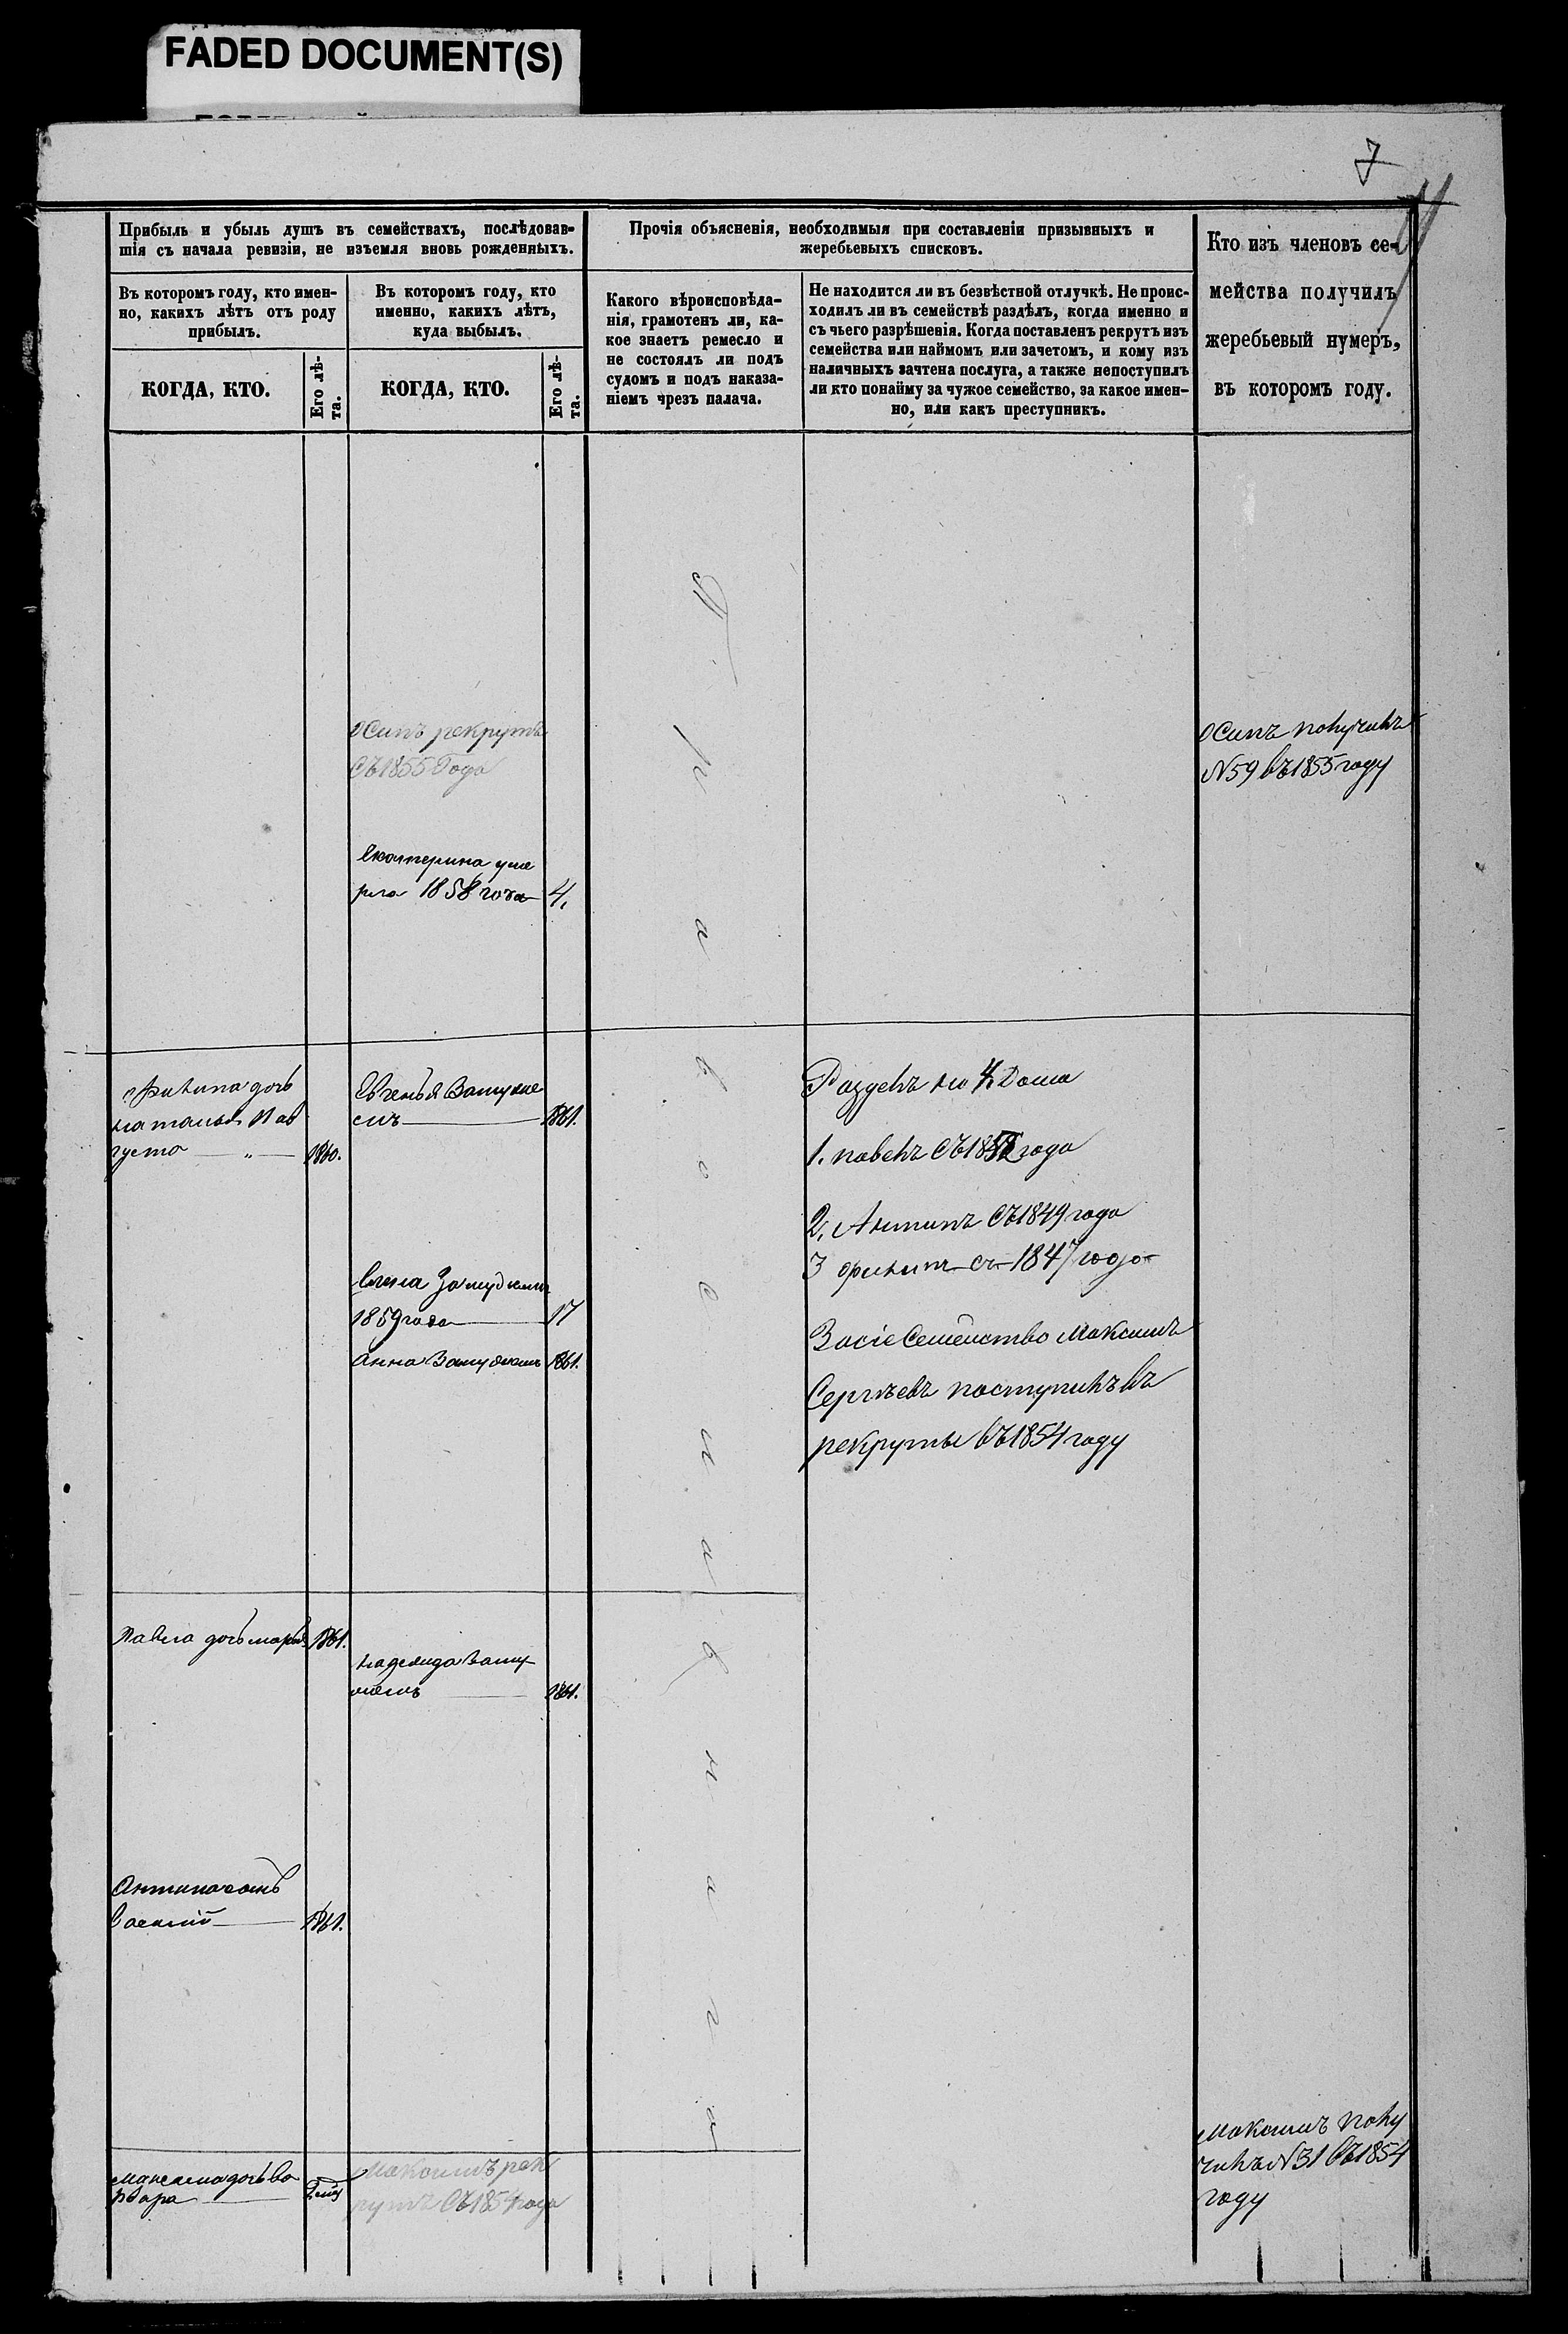 FADED DOCUMENT(S)
7
Прибыль и убыль душъ въ семействахъ, послѣдовав-
шія съ начала ревизіи, не изъемля вновь рожденныхъ.
Въ которомъ году, кто имен-
но, какихъ лѣтъ отъ роду
прибылъ.
КОГДА, КТО.
Его лѣ-
та.
Въ которомъ году, кто
именно, какихъ лѣтъ,
куда выбылъ.
КОГДА, КТО.
Его лѣ-
та.
Прочія объясненія, необходимыя при составленіи призывныхъ и
жеребьевыхъ списковъ.
Какого вѣроисповѣда-
нія, грамотенъ ли, ка-
кое знаетъ ремесло и
не состоялъ ли подъ
судомъ и подъ наказа-
ніемъ чрезъ палача.
Не находится ли въ безвѣстной отлучкѣ. Не проис-
ходилъ ли въ семействѣ раздѣлъ, когда именно и
съ чьего разрѣшенія. Когда поставленъ рекрутъ изъ
семейства или наймомъ или зачетомъ, и кому изъ
наличныхъ зачтена послуга, а также непоступилъ
ли кто понайму за чужое семейство, за какое имен-
но, или какъ преступникъ.
Кто изъ членовъ се-
мейства получилъ
жеребьевый нумеръ,
въ которомъ году.
Осипъ рекрутъ
съ 1855 Года
Осипъ получилъ
N 59 въ 1855 году
Екатерина уме
рла 1858 года 4.
Филипа дочь
наталья П ав
густа " 1860.
Евгенья Замуже
мъ 1861.
Елена Замужемъ
1859 года 17
Анна Замужемъ 1861.
Раздѣлъ на 4. Дома
1. павелъ съ 1852 года
2. Антипъ съ 1849 года
3 филипъ съ 1847 года
За сіе Семейство Максимъ
Сергѣевъ поступилъ въ
рекруты въ 1854 году
Павла дочь марья 1861.
надежда Заму
жемъ 1861.
Антипа сынъ
Василій 1861.
Максима дочь Ва
рвара
Максимъ рек
рутъ съ 1854 года
Максимъ полу
чилъ N 31 въ 1854
году
Православнаго